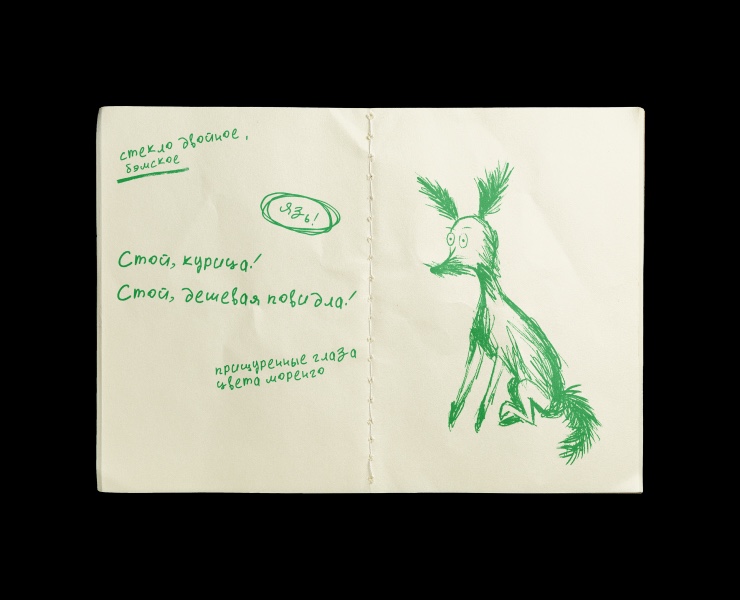 стекло двойное,
бэмское
язь!
Стой, курица!
Стой, дешевая повидла!
прищуренные глаза
цвета моренго